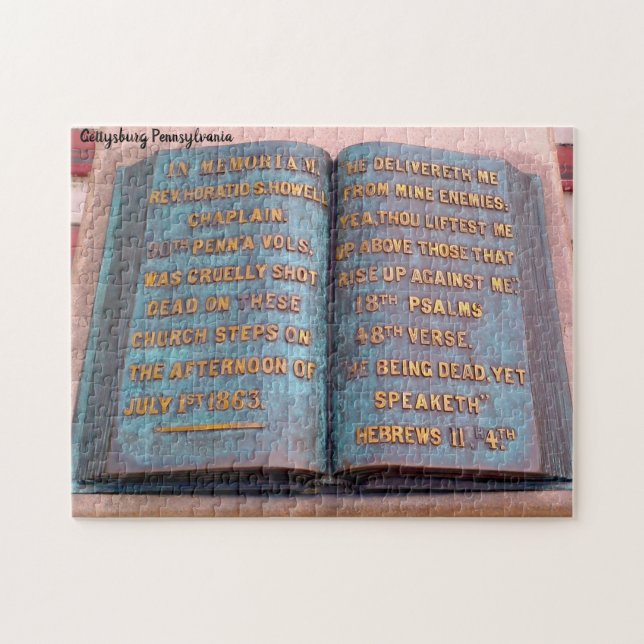 Gettysburg Pennsylvania
IN MEMORIAM.
REV. HORATIO S. HOWELL
CHAPLAIN.
90TH PENN'A VOLS.
WAS CRUELLY SHOT
DEAD ON THESE
CHURCH STEPS ON
THE AFTERNOON OF
JULY 1ST 1863.
"HE DELIVERETH ME
FROM MINE ENEMIES:
YEA, THOU LIFTEST ME
UP ABOVE THOSE THAT
RISE UP AGAINST ME".
18TH PSALMS
48TH VERSE.
"HE BEING DEAD, YET
SPEAKETH"
HEBREWS 11, 4TH